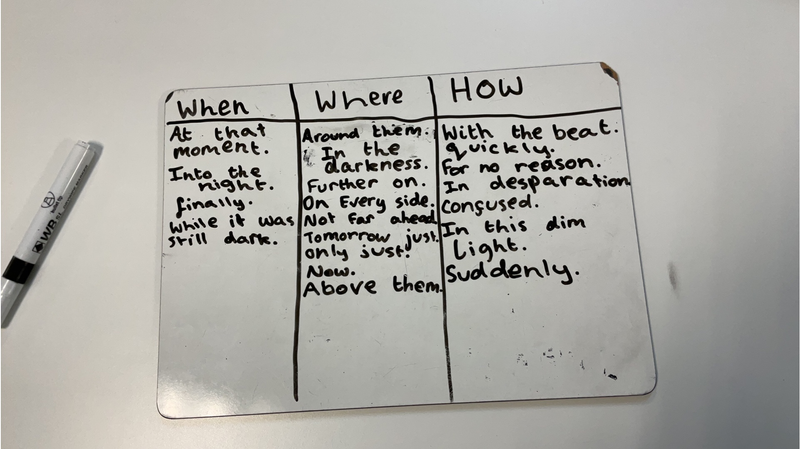 When
At that
moment.
Into the
night.
finally.
While it was
still dark.
Where
Around them.
In the
darkness.
Further on.
On Every side.
Not far ahead
Tomorrow just.
only just.
Now.
Above them.
HOW
With the beat.
quickly.
For no reason.
In desparation
Consused.
In this dim
Light.
Suddenly.